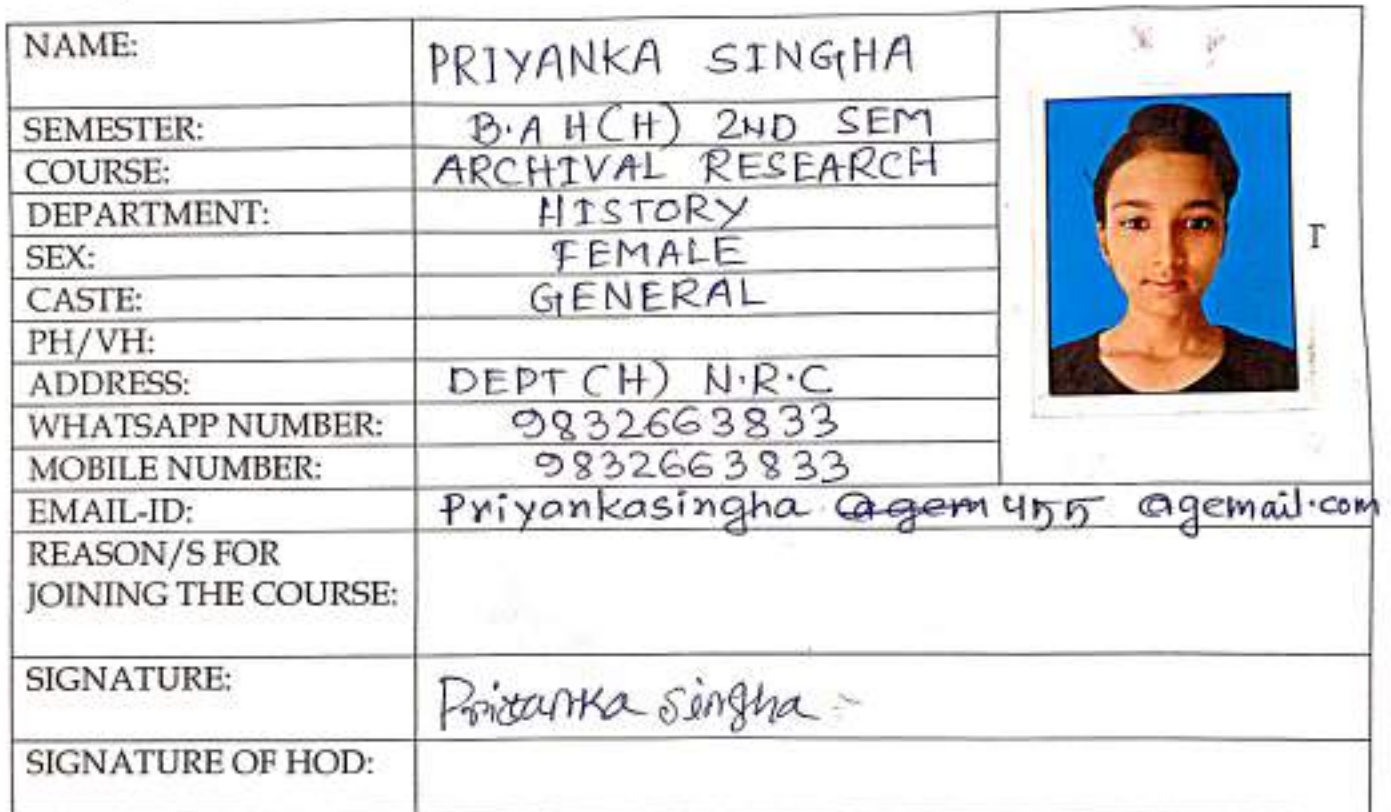 NAME: PRIYANKA SINGHA
SEMESTER: B.A H(H) 2ND SEM
COURSE: ARCHIVAL RESEARCH
DEPARTMENT: HISTORY
SEX: FEMALE
CASTE: GENERAL
PH/VH:
ADDRESS: DEPT (H) N.R.C
WHATSAPP NUMBER: 9832663833
MOBILE NUMBER: 9832663833
EMAIL-ID: Priyankasingha @gem 455 @gemail.com
REASON/S FOR
JOINING THE COURSE:
SIGNATURE: Priyanka singha
SIGNATURE OF HOD: